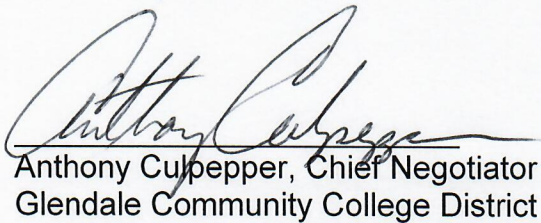 Anthony Culpepper
Anthony Culpepper, Chief Negotiator
Glendale Community College District